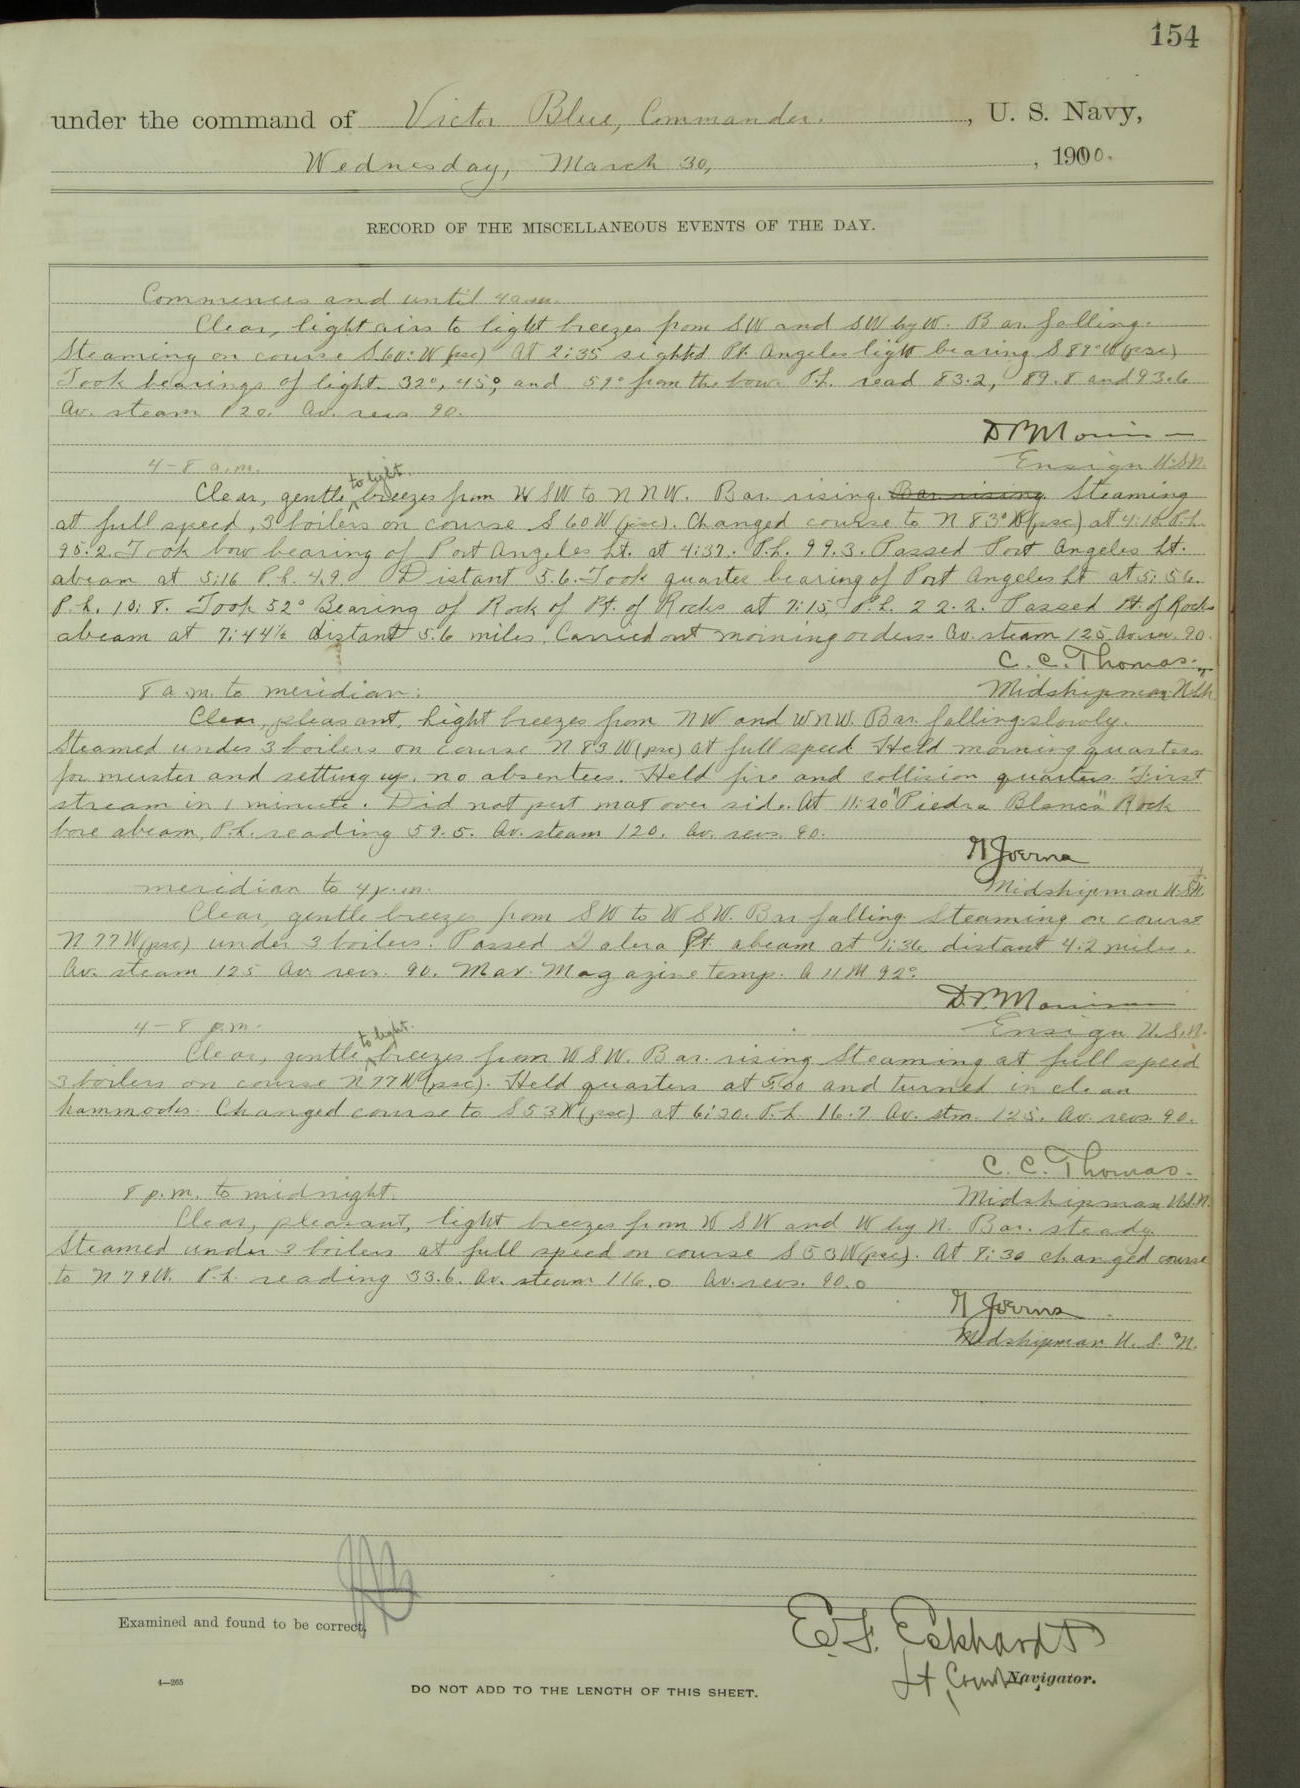 154
under the command of Victor Blue, Commander. , U. S. Navy,
Wednesday, March 30, , 1910.
RECORD OF THE MISCELLANEOUS EVENTS OF THE DAY.
Commences and until 4 a.m.
Clear, light airs to light breezes from SW and SW by W. Bar. falling.
Steaming on course S 60° W (psc) At 2:35 sighted Pt. Angeles light bearing S 89° W (psc)
Took bearings of light 32°, 45°, and 59° from the bow P.L. read 83.2, 89.8 and 93.6
Av. steam 120. Av. revs 90.
Ensign U.S.N.
4-8 a.m.
Clear, gentle to light breezes from WSW to NNW. Bar. rising. Bar. rising Steaming
at full speed, 3 boilers on course S 60 W (psc). Changed course to N 83° W (psc) at 4:10 P.L.
95.2. Took bow bearing of Port Angeles Lt. at 4:37. P.L. 99.3. Passed Port Angeles Lt.
abeam at 5:16 P.L. 4.9. Distant 5.6. Took quarter bearing of Port Angeles Lt at 5:56.
P.L. 10.8. Took 52° Bearing of Rock of Pt. of Rocks at 7:15, P.L. 22.2. Passed Pt. of Rocks
abeam at 7:44½ distant 5.6 miles. Carried out morning orders. Av. steam 125. Av. rev. 90.
C. C. Thomas.
Midshipman U.S.N.
8 a.m. to meridian.
Clear, pleasant, light breezes from NW and WNW. Bar. falling slowly.
Steamed under 3 boilers on course N 83 W (psc) at full speed Held morning quarters
for muster and setting up, no absentees. Held fire and collision quarters. First
stream in 1 minute. Did not put mat over side. At 11:20 "Piedra Blanca" Rock
bore abeam, P.L. reading 59.5. Av. steam 120. Av. revs. 90.
Midshipman U.S.N.
meridian to 4 p.m.
Clear, gentle breezes from SW to WSW. Bar falling. Steaming on course
N 77 W (psc) under 3 boilers. Passed Galera Pt. abeam at 1:36, distant 4.2 miles.
Av. steam 125 Av. revs. 90. Max. Magazine temp. A 11 M 92°.
Ensign U.S.N.
4-8 p.m.
Clear, gentle to light breezes from WSW. Bar. rising Steaming at full speed
3 boilers on course N 77 W (psc). Held quarters at 5:00 and turned in clean
hammocks. Changed course to S 53 W (psc) at 6:20. P.L. 16.7 Av. stm. 125. Av. revs. 90.
C. C. Thomas.
Midshipman U.S.N.
8 p.m. to midnight.
Clear, pleasant, light breezes from WSW and W by N. Bar. steady
Steamed under 3 boilers at full speed on course S 53 W (psc). At 8:30 changed course
to N 79 W. P.L. reading 33.6. Av. steam 116.0 Av. revs. 90.0
Midshipman U. S. N.
Examined and found to be correct.
E. F. Eckhardt
Lt Comdr, Navigator.
4—265
DO NOT ADD TO THE LENGTH OF THIS SHEET.